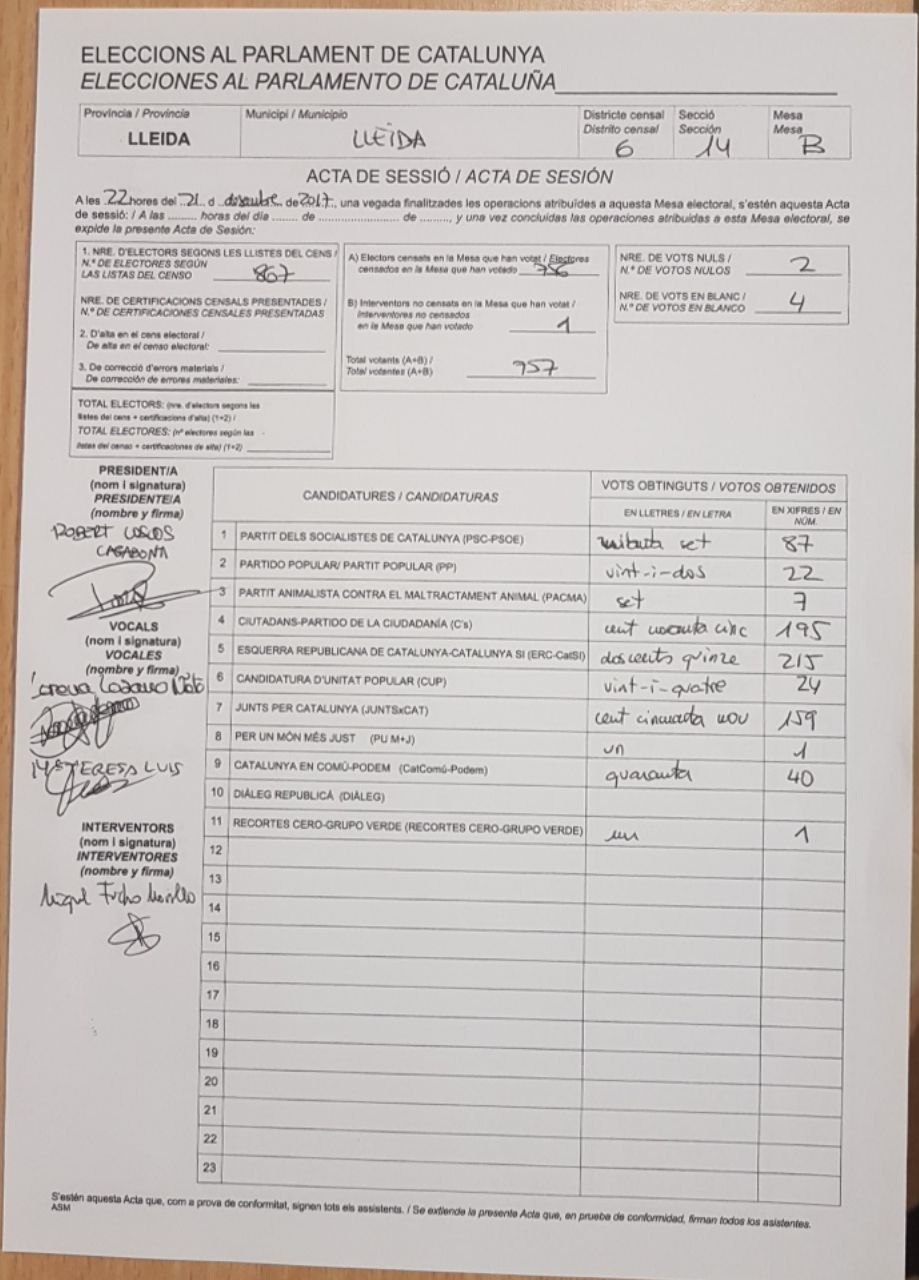 ELECCIONS AL PARLAMENT DE CATALUNYA
ELECCIONES AL PARLAMENTO DE CATALUÑA
Província / Provincia
LLEIDA
Municipi / Municipio
LLEIDA
Districte censal
Distrito censal
6
Secció
Sección
14
Mesa
Mesa
B
ACTA DE SESSIÓ / ACTA DE SESIÓN
A les 22 hores del 21 d desembre de 2017, una vegada finalitzades les operacions atribuïdes a aquesta Mesa electoral, s'estén aquesta Acta
de sessió: / A las ......... horas del día ....... de .................... de ........, y una vez concluidas las operaciones atribuidas a esta Mesa electoral, se
expide la presente Acta de Sesión:
1. NRE. D'ELECTORS SEGONS LES LLISTES DEL CENS /
N.º DE ELECTORES SEGÚN
LAS LISTAS DEL CENSO 867
NRE. DE CERTIFICACIONS CENSALS PRESENTADES /
N.º DE CERTIFICACIONES CENSALES PRESENTADAS
2. D'alta en el cens electoral /
De alta en el censo electoral:
3. De correcció d'errors materials /
De corrección de errores materiales:
TOTAL ELECTORS: (nre. d'electors segons les
llistes del cens + certificacions d'alta) (1+2) /
TOTAL ELECTORES: (nº electores según las
listas del censo + certificaciones de alta) (1+2)
A) Electors censats en la Mesa que han votat / Electores
censados en la Mesa que han votado 756
B) Interventors no censats en la Mesa que han votat /
Interventores no censados
en la Mesa que han votado 1
Total votants (A+B) /
Total votantes (A+B) 757
NRE. DE VOTS NULS /
N.º DE VOTOS NULOS 2
NRE. DE VOTS EN BLANC /
N.º DE VOTOS EN BLANCO 4
PRESIDENT/A
(nom i signatura)
PRESIDENTE/A
(nombre y firma)
ROBERT
VOCALS
(nom i signatura)
VOCALES
(nombre y firma)
Mª TERESA LUIS
INTERVENTORS
(nom i signatura)
INTERVENTORES
(nombre y firma)
Miquel
CANDIDATURES / CANDIDATURAS
VOTS OBTINGUTS / VOTOS OBTENIDOS
EN LLETRES / EN LETRA
EN XIFRES / EN
NÚM.
1 PARTIT DELS SOCIALISTES DE CATALUNYA (PSC-PSOE) set 87
2 PARTIDO POPULAR/ PARTIT POPULAR (PP) vint-i-dos 22
3 PARTIT ANIMALISTA CONTRA EL MALTRACTAMENT ANIMAL (PACMA) set 7
4 CIUTADANS-PARTIDO DE LA CIUDADANÍA (C's) cent noranta cinc 195
5 ESQUERRA REPUBLICANA DE CATALUNYA-CATALUNYA SÍ (ERC-CatSÍ) doscents quinze 215
6 CANDIDATURA D'UNITAT POPULAR (CUP) vint-i-quatre 24
7 JUNTS PER CATALUNYA (JUNTSxCAT) cent cincuata nou 159
8 PER UN MÓN MÉS JUST (PU M+J) un 1
9 CATALUNYA EN COMÚ-PODEM (CatComú-Podem) quaranta 40
10 DIÀLEG REPUBLICÀ (DIÀLEG)
11 RECORTES CERO-GRUPO VERDE (RECORTES CERO-GRUPO VERDE) un 1
12
13
14
15
16
17
18
19
20
21
22
23
S'estén aquesta Acta que, com a prova de conformitat, signen tots els assistents. / Se extiende la presente Acta que, en prueba de conformidad, firman todos los asistentes.
ASM